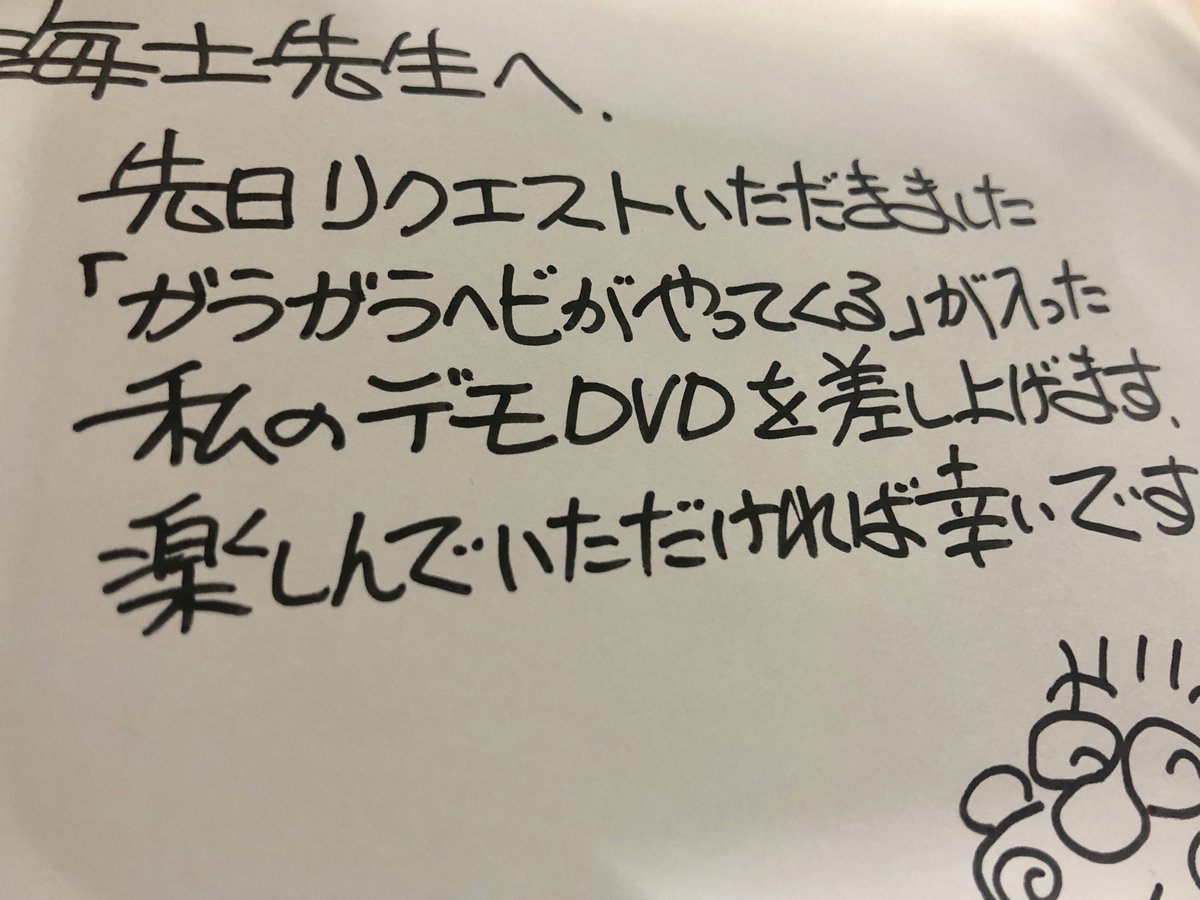 海士先生へ.
先日リクエストいただきました
「ガラガラヘビがやってくる」が入った
私のデモDVDを差し上げます.
楽しんでいただければ幸いです